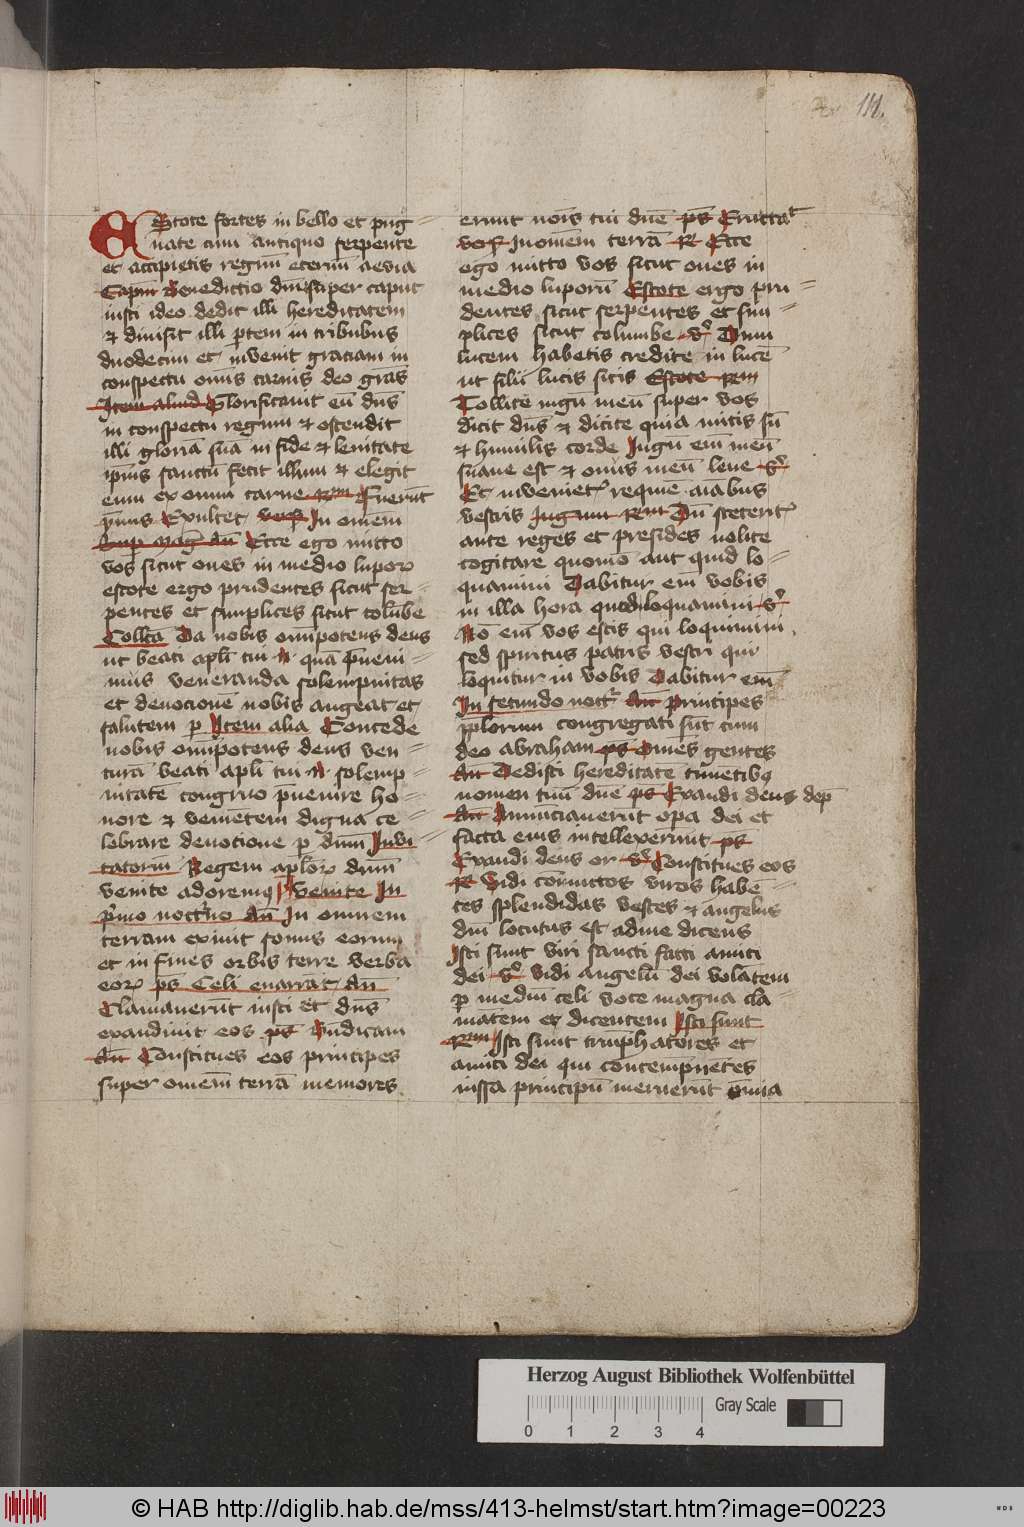 111.
EStote fortes in bello et pug
nate cum antiquo serpente
et accipietis regnū eternū aevia
Capm̄ Benedictio dnī super caput
iusti ideo dedit illi hereditatem
et divisit illi ptem in tribubus
duodecim et invenit graciam in
conspectu omīs carnis deo grās
Item aliud Glorificavit eū dns̄
in conspectu regum et ostendit
illi gloriā suā in fide et lenitate
ip̄ius sanctū fecit illum et elegit
eum ex omni carne Rm Fuerūt
p̄mis Exultet vers In omēm
Sup mag an̄ Ecce ego mitto
vos sicut oves in medio lupoꝝ
estote ergo prudentes sicut ser
pentes et simplices sicut colūbe
Collc̄a Da nobis omīpotens deus
ut beati apl̄i tui N quā p̄veni
mus veneranda solempnitas
et devocionē nobis augeat et
salutem p Item alia Concede
nobis omīpotens deus ven
turā beati apl̄i tui N solemp
nitatē congruo p̄venire ho
nore et veniētem digna ce
lebrare devotione p dnm̄ Invi
tatoriū Regem apl̄oꝝ dnm̄
venite adoremꝰ ps Venite In
p̄mo noctno an̄ In omnem
terram exivit sonus eorum
et in fines orbis terre verba
eoꝝ ps̄ Celi enarrāt an̄
Clamaverūt iusti et dns̄
exaudivit eos ps̄ Bn̄dicam
an̄ Constitues eos principes
super omēm terrā memores
erunt noīs tui dnē ps̄ Eructat
vers In omēm terrā R Ecce
ego mitto vos sicut oves in
medio luporū Estote ergo pru
dentes sicut serpentes et sim
plices sicut columbe v Dum
lucem habetis credite in lucē
ut filii lucis sitis Estote Rm
Tollite iugū meū super vos
dicit dns̄ et dicite quia mitis sū
et humilis corde Iugū em̄ meū
suave est et onus meū leve v
Et invenietꝰ requiē aīabus
vestris Iugum Rm Dū steteritꝰ
ante reges et presides nolite
cogitare quomō aut quid lo
quamini Dabitur em̄ vobis
in illa hora quid loquamini v
Nō em̄ vos estis qui loquimini
sed spiritus patris vestri qui
loquitur in vobis Dabitur em̄
In secundo noct an̄ Principes
pplorum congregati sūt cum
deo abraham ps Omēs gentes
an̄ Dedisti hereditatē timētibꝰ
nomen tuū dnē ps Exaudi deus dep̄
an̄ Annūciaverūt opa dei et
facta eius intellexerunt ps̄
Exaudi deus or v Constitues eos
R Vidi cōiūctos viros habē
tes splendidas vestes et angelus
dnī locutus est ad me dicens
Isti sunt viri sancti facti amici
dei v Vidi angelū dei volātem
p mediū celi voce magna cla
mātem et dicentem Isti sunt
Rm Isti sunt triuphatores et
amici dei qui contempnētes
iussa principū meruerūt omīa
Herzog August Bibliothek Wolfenbüttel
Gray Scale
0 1 2 3 4
© HAB http://diglib.hab.de/mss/413-helmst/start.htm?image=00223